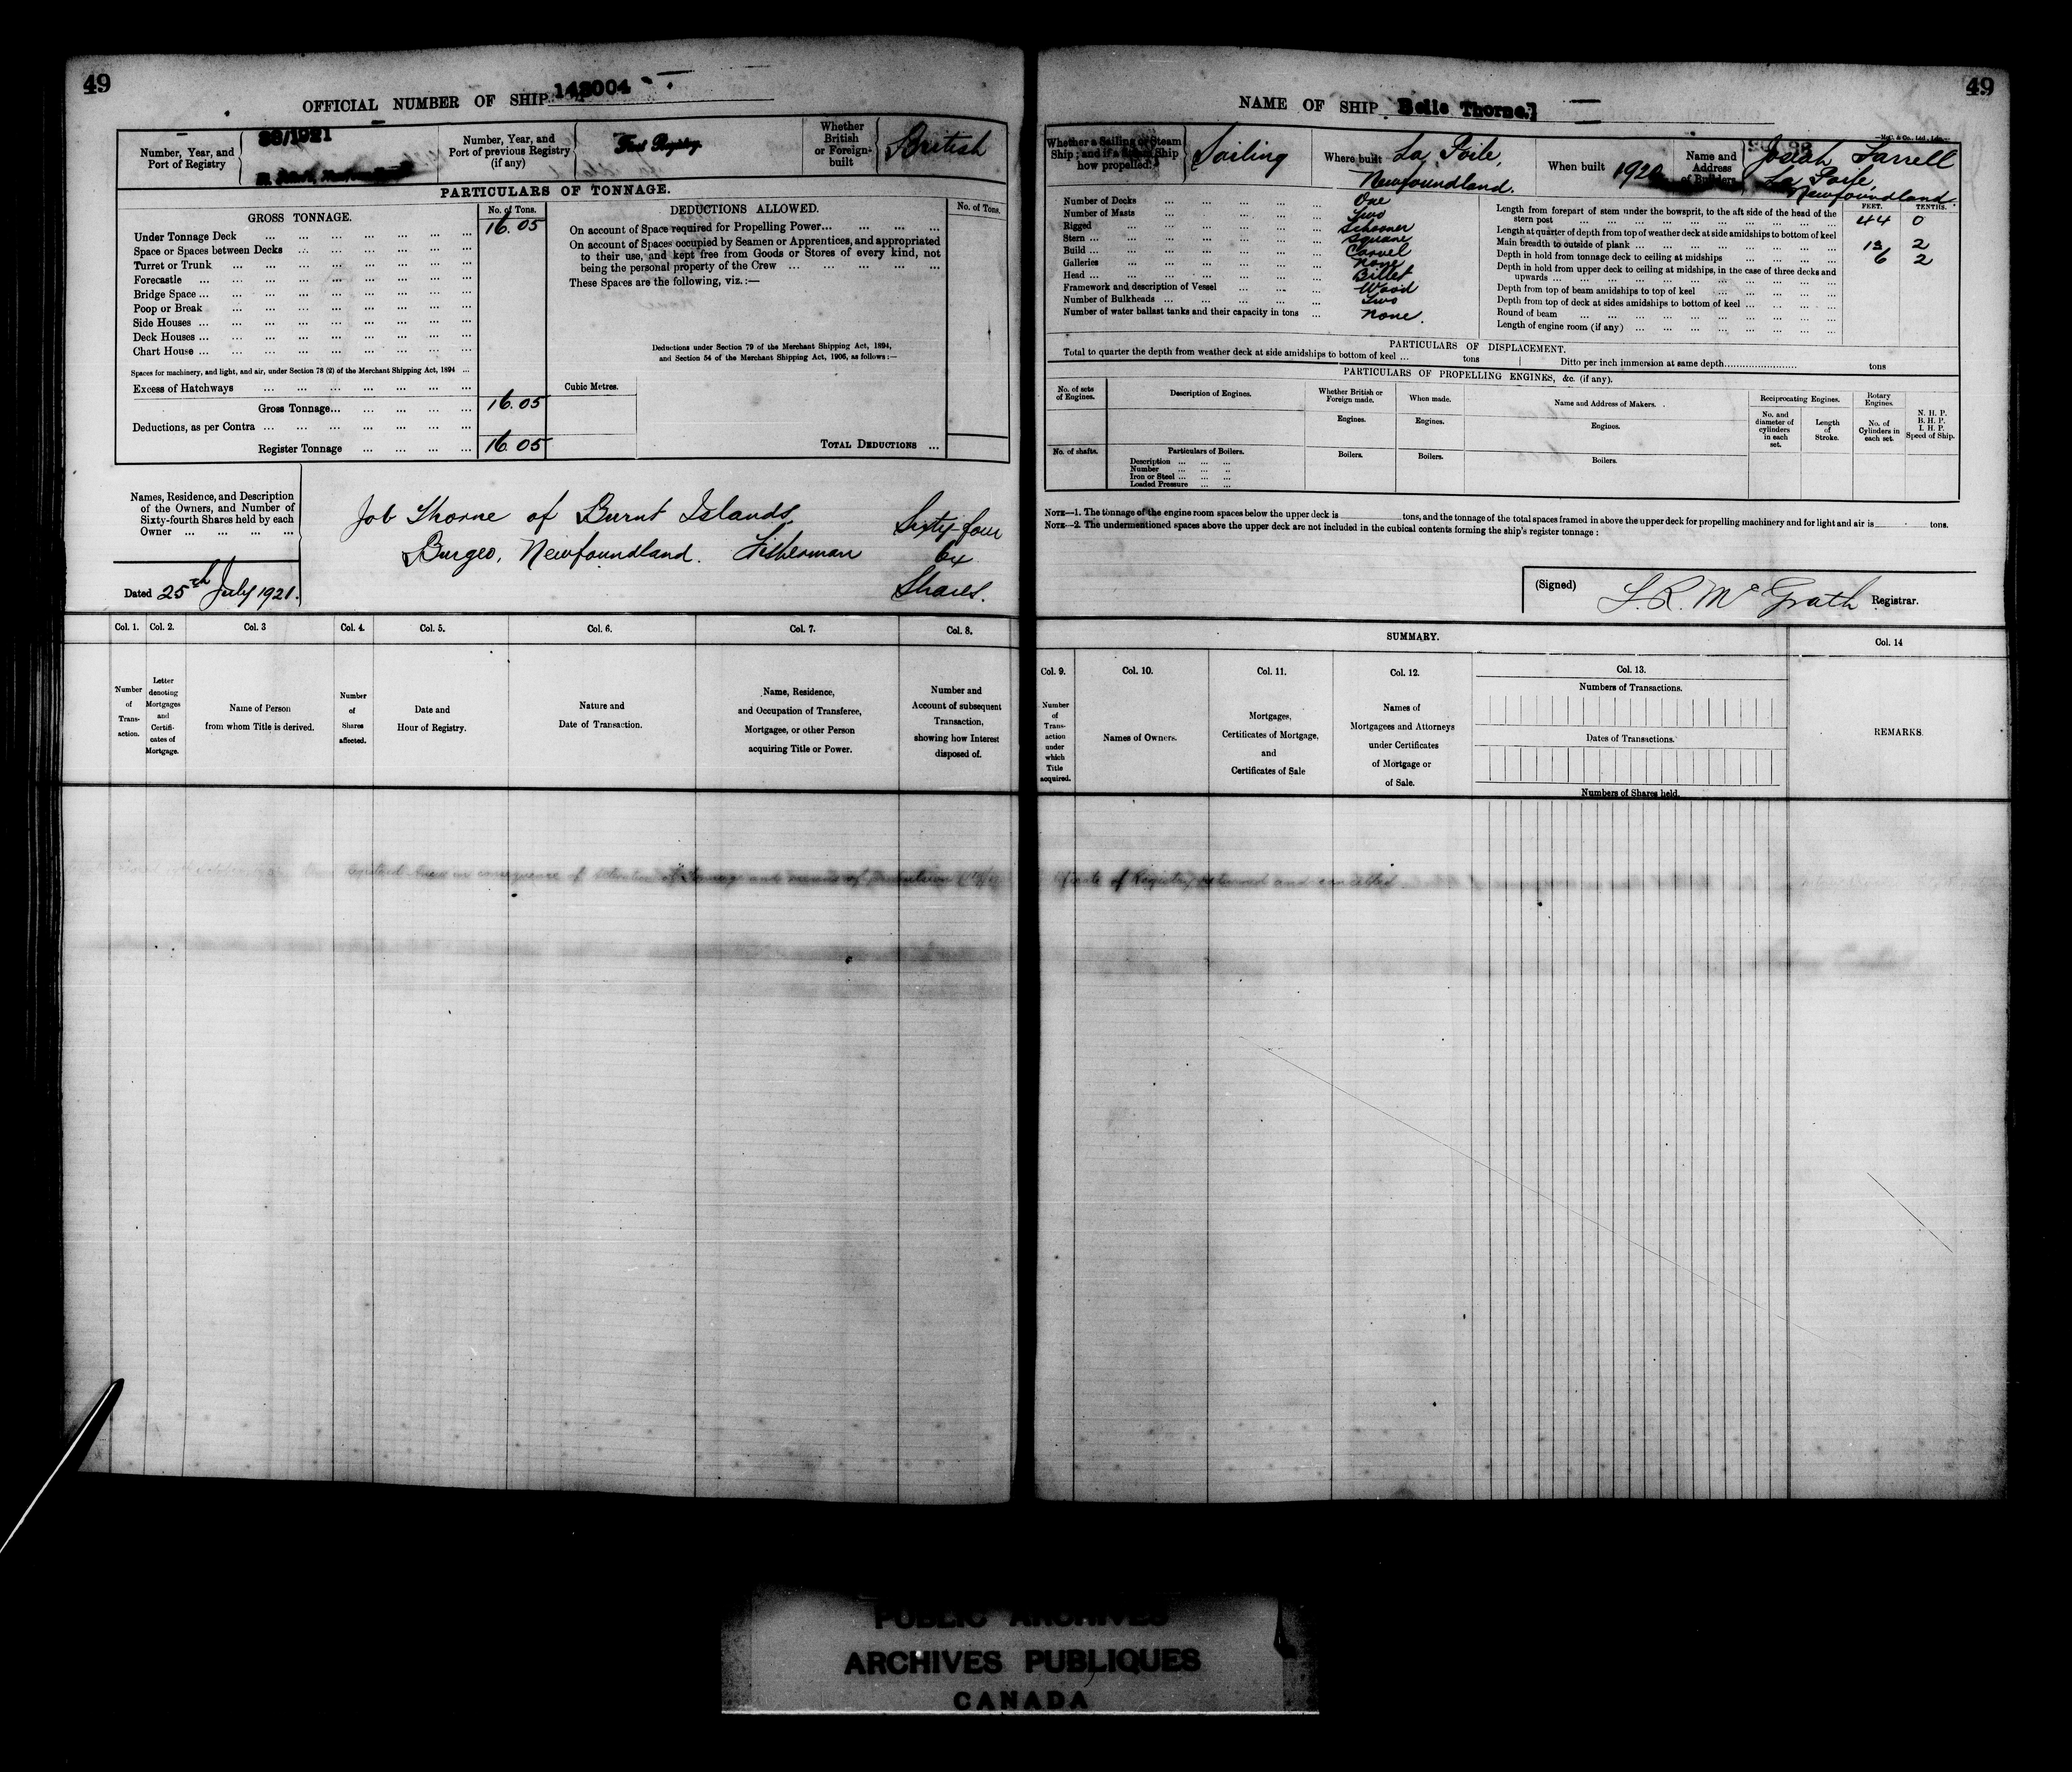 49
OFFICIAL NUMBER OF SHIP
Number, Year, and Port of Registry
/1921
Number, Year, and Port of previous Registry (if any)
First Registry.
Whether British or Foreign-built
British
PARTICULARS OF TONNAGE.
GROSS TONNAGE.
No. of Tons.
Under Tonnage Deck ... 16.05
Space or Spaces between Decks ...
Turret or Trunk ...
Forecastle ...
Bridge Space ...
Poop or Break ...
Side Houses ...
Deck Houses ...
Chart House ...
Spaces for machinery, and light, and air, under Section 78 (2) of the Merchant Shipping Act, 1894 ...
Excess of Hatchways ...
Gross Tonnage... 16.05
Deductions, as per Contra ...
Register Tonnage ... 16.05
DEDUCTIONS ALLOWED.
No. of Tons.
On account of Space required for Propelling Power...
On account of Spaces occupied by Seamen or Apprentices, and appropriated
to their use, and kept free from Goods or Stores of every kind, not
being the personal property of the Crew ...
These Spaces are the following, viz.:—
Deductions under Section 79 of the Merchant Shipping Act, 1894,
and Section 54 of the Merchant Shipping Act, 1906, as follows:—
Cubic Metres.
TOTAL DEDUCTIONS ...
Names, Residence, and Description
of the Owners, and Number of
Sixty-fourth Shares held by each
Owner ...
Job Thorne of Burnt Islands, Sixty-four
Burgeo, Newfoundland. Fisherman 64
Shares.
Dated 25th July 1921.
Col. 1. Col. 2. Col. 3 Col. 4. Col. 5. Col. 6. Col. 7. Col. 8.
Number of Trans-action.
Letter denoting Mortgages and Certifi-cates of Mortgage.
Name of Person from whom Title is derived.
Number of Shares affected.
Date and Hour of Registry.
Nature and Date of Transaction.
Name, Residence, and Occupation of Transferee, Mortgagee, or other Person acquiring Title or Power.
Number and Account of subsequent Transaction, showing how Interest disposed of.
49
NAME OF SHIP Belle Thorne.
Whether a Sailing or Steam Ship; and if a Steam Ship how propelled.
Sailing
Where built La Poile,
Newfoundland.
When built 1920
Name and Address of Builders
Josiah Farrell
La Poile,
Newfoundland.
Number of Decks ... One
Number of Masts ... Two
Rigged ... Schooner
Stern ... Square
Build ... Carvel
Galleries ... None
Head ... Billet
Framework and description of Vessel ... Wood
Number of Bulkheads ... Two
Number of water ballast tanks and their capacity in tons ... None.
FEET. TENTHS.
Length from forepart of stem under the bowsprit, to the aft side of the head of the
stern post ... 44 0
Length at quarter of depth from top of weather deck at side amidships to bottom of keel
Main breadth to outside of plank ... 13 2
Depth in hold from tonnage deck to ceiling at midships ... 6 2
Depth in hold from upper deck to ceiling at midships, in the case of three decks and
upwards ...
Depth from top of beam amidships to top of keel ...
Depth from top of deck at sides amidships to bottom of keel ...
Round of beam ...
Length of engine room (if any) ...
PARTICULARS OF DISPLACEMENT.
Total to quarter the depth from weather deck at side amidships to bottom of keel ... tons Ditto per inch immersion at same depth... tons
PARTICULARS OF PROPELLING ENGINES, &c. (if any).
No. of sets of Engines.
Description of Engines.
Whether British or Foreign made.
When made.
Name and Address of Makers.
Reciprocating Engines.
Rotary Engines.
N. H. P.
B. H. P.
I. H. P.
Speed of Ship.
Engines. Engines. Engines.
No. and diameter of cylinders in each set.
Length of Stroke.
No. of Cylinders in each set.
No. of shafts.
Particulars of Boilers.
Boilers. Boilers. Boilers.
Description ...
Number ...
Iron or Steel ...
Loaded Pressure ...
NOTE—1. The tonnage of the engine room spaces below the upper deck is tons, and the tonnage of the total spaces framed in above the upper deck for propelling machinery and for light and air is tons.
NOTE—2. The undermentioned spaces above the upper deck are not included in the cubical contents forming the ship's register tonnage:
(Signed) Registrar.
SUMMARY.
Col. 9. Col. 10. Col. 11. Col. 12. Col. 13. Col. 14
Number of Trans-action under which Title acquired.
Names of Owners.
Mortgages, Certificates of Mortgage, and Certificates of Sale
Names of Mortgagees and Attorneys under Certificates of Mortgage or of Sale.
Numbers of Transactions.
Dates of Transactions.
Numbers of Shares held.
REMARKS.
PUBLIC ARCHIVES
ARCHIVES PUBLIQUES
CANADA